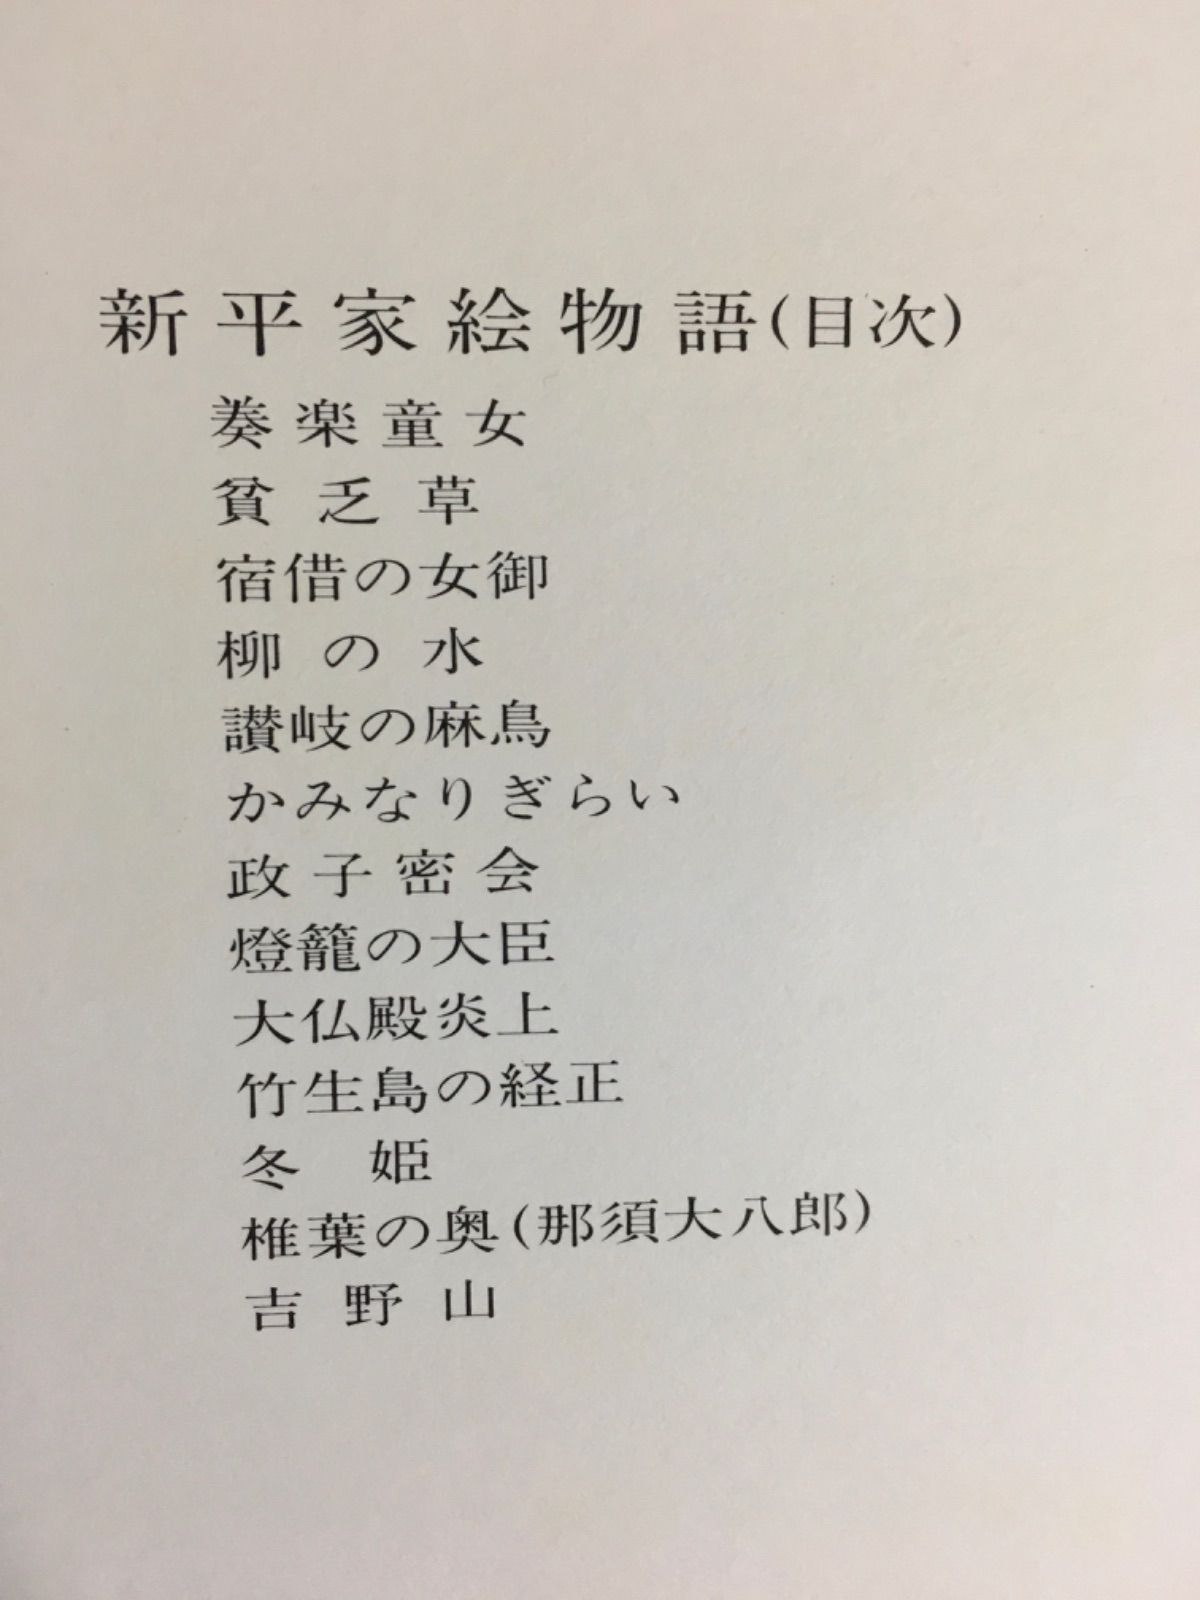 新平家絵物語(目次)
奏楽童女
貧乏草
宿借の女御
柳の水
讃岐の麻鳥
かみなりぎらい
政子密会
燈籠の大臣
大仏殿炎上
竹生島の経正
冬姫
椎葉の奥(那須大八郎)
吉野山